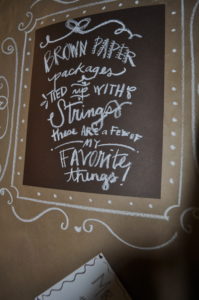 BROWN PAPER
packages
TIED UP WITH
Strings
these ARE A FEW OF
MY
FAVORITE
things!